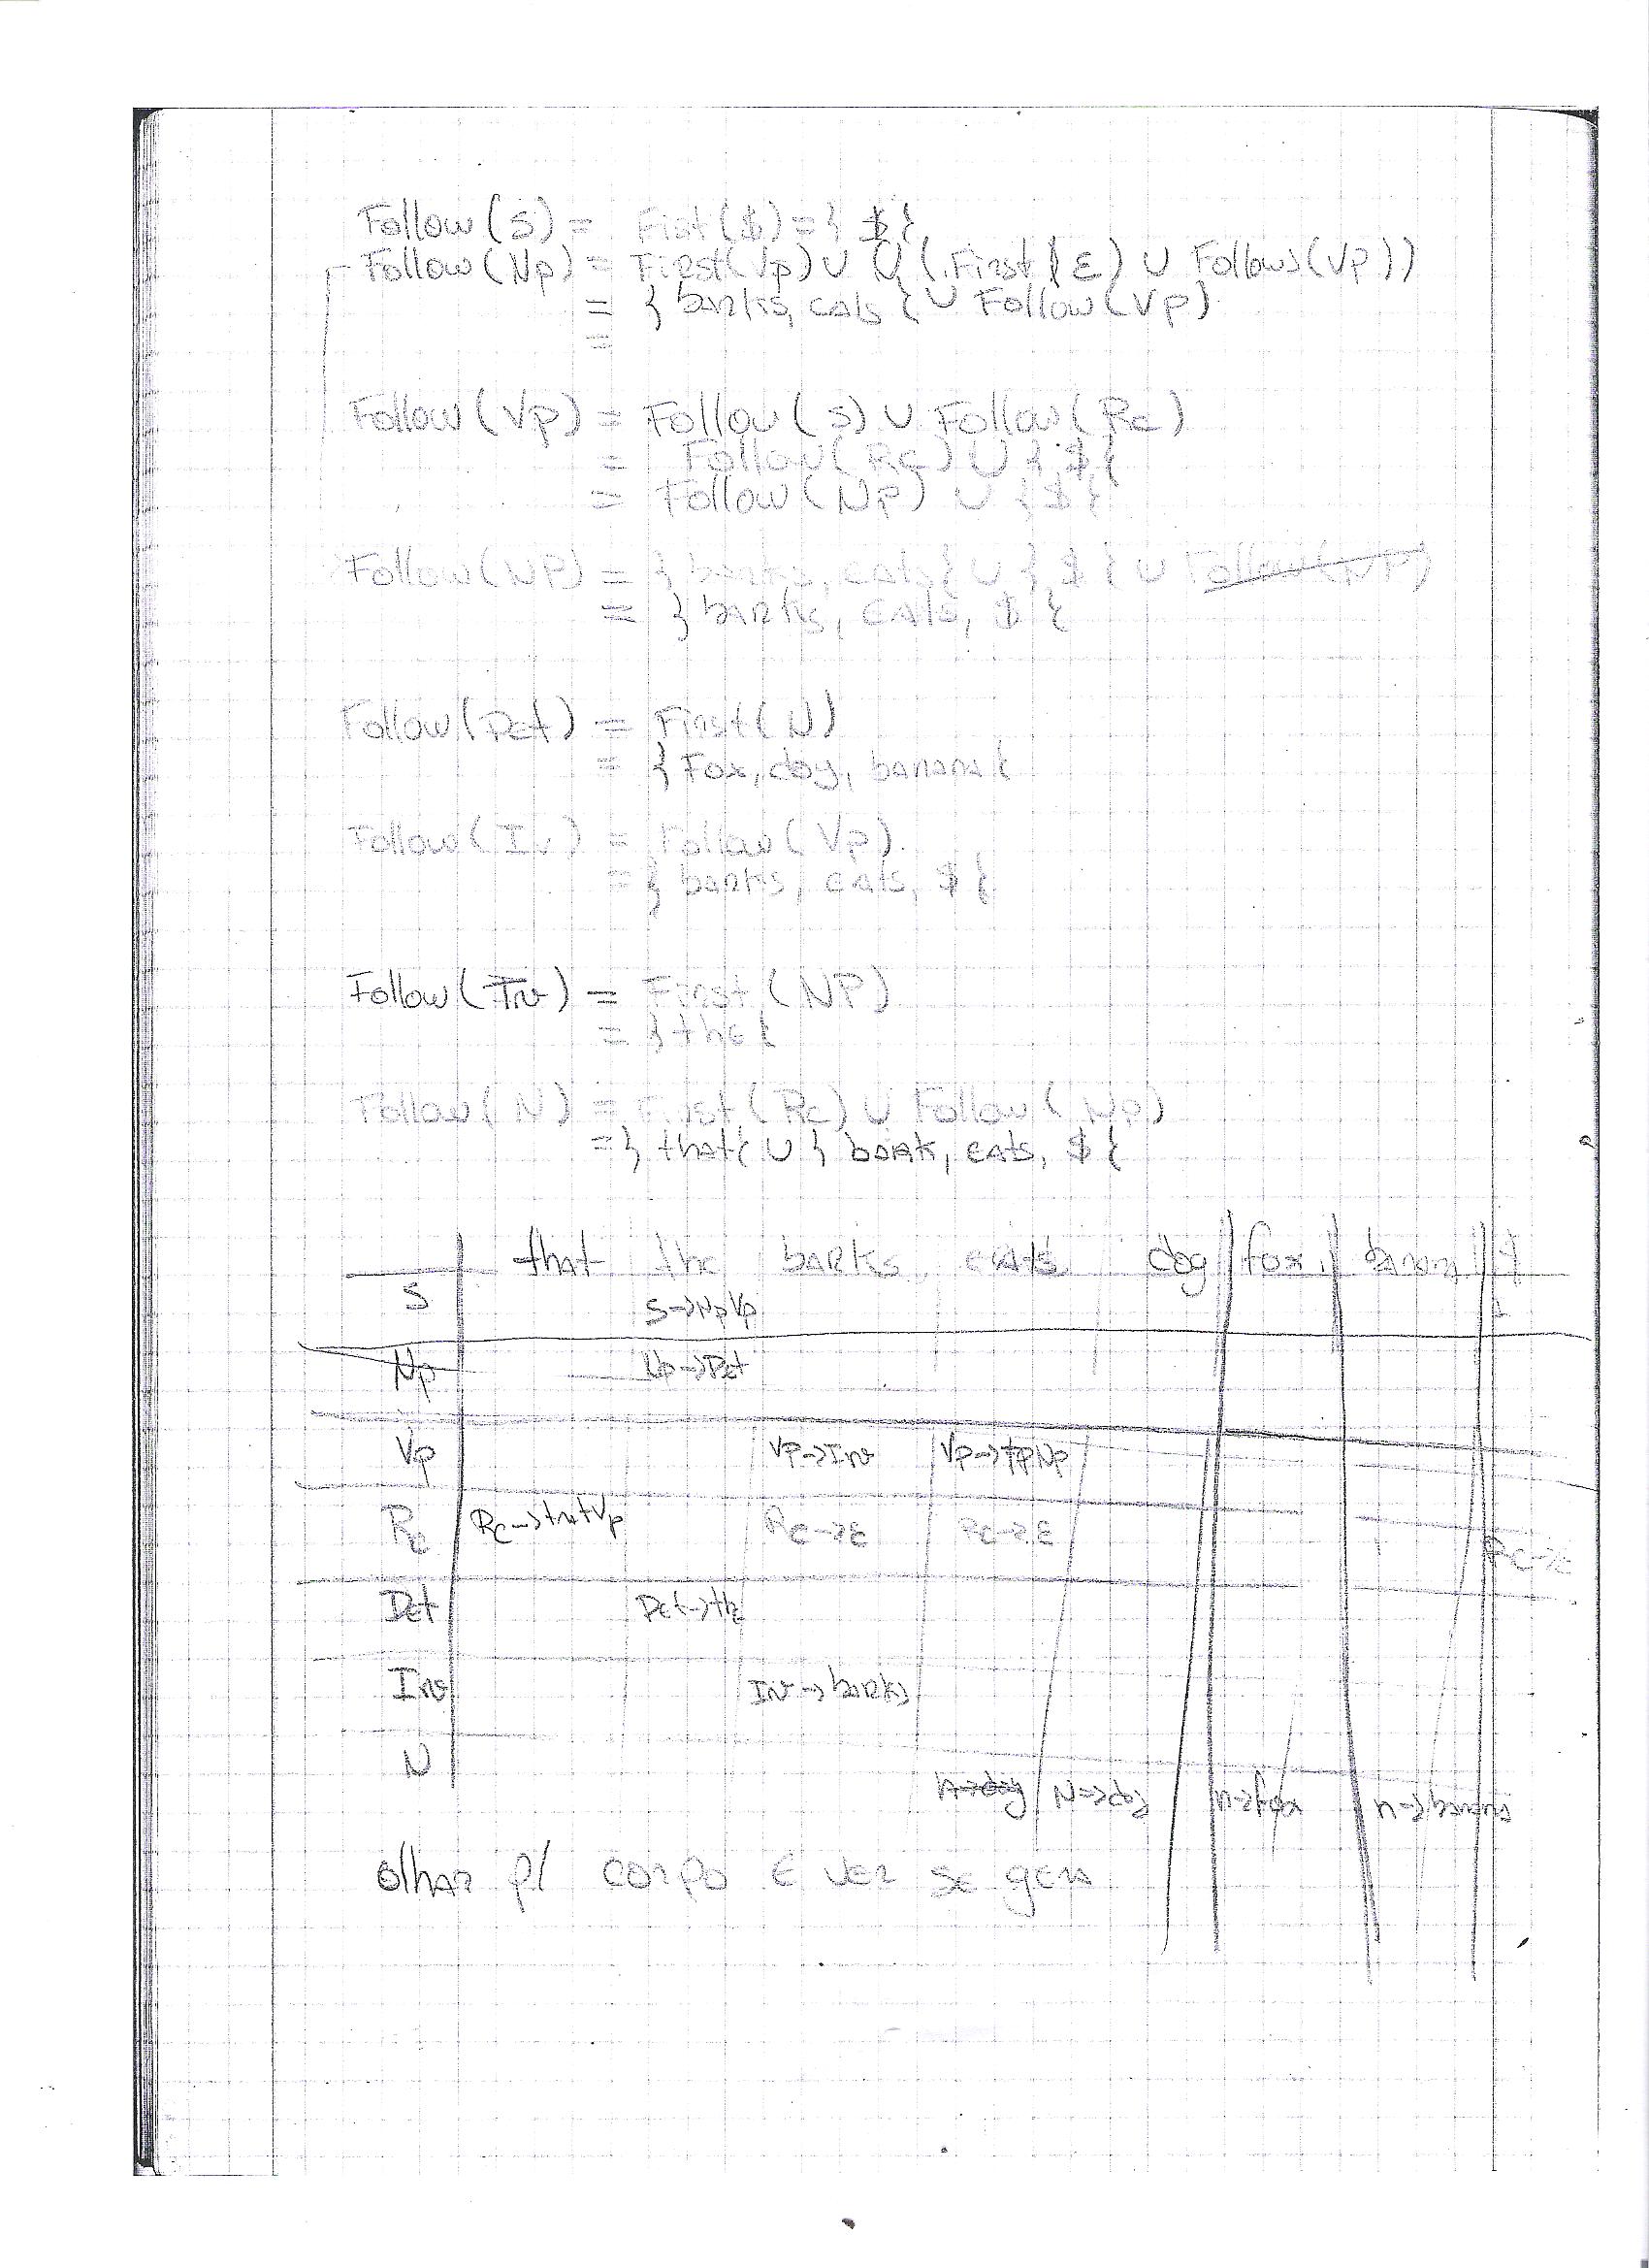 Follow(S) = Fist($) = { $ {
Follow(Np) = First(Vp) ∪ ∪ (First(ε) ∪ Follow(Vp))
= { barks, eats { ∪ Follow(Vp)
=
Follow(Vp) = Follow(S) ∪ Follow(Rc)
= Follow(Rc) ∪ { $ {
= Follow(Np) ∪ { $ {
Follow(NP) = { barks, eats { ∪ { $ { ∪ Follow(NP)
= { barks, eats, $ {
Follow(Det) = First(N)
= { Fox, dog, banana {
Follow(Iv) = Follow(Vp)
= { barks, eats, $ {
Follow(Tv) = First(NP)
= { the {
Follow(N) = First(Rc) ∪ Follow(Np)
= { that { ∪ { bark, eats, $ {
that the barks eats dog fox banan $
S S→NpVp
Np Np→Det
Vp Vp→Inv Vp→tpNp
Rc Rc→thatVp Rc→ε Rc→ε Rc→ε
Det Det→the
Inv Inv→barks
N n→dog N→dog n→fox n→banana
olhar p/ corpo e ver se gera